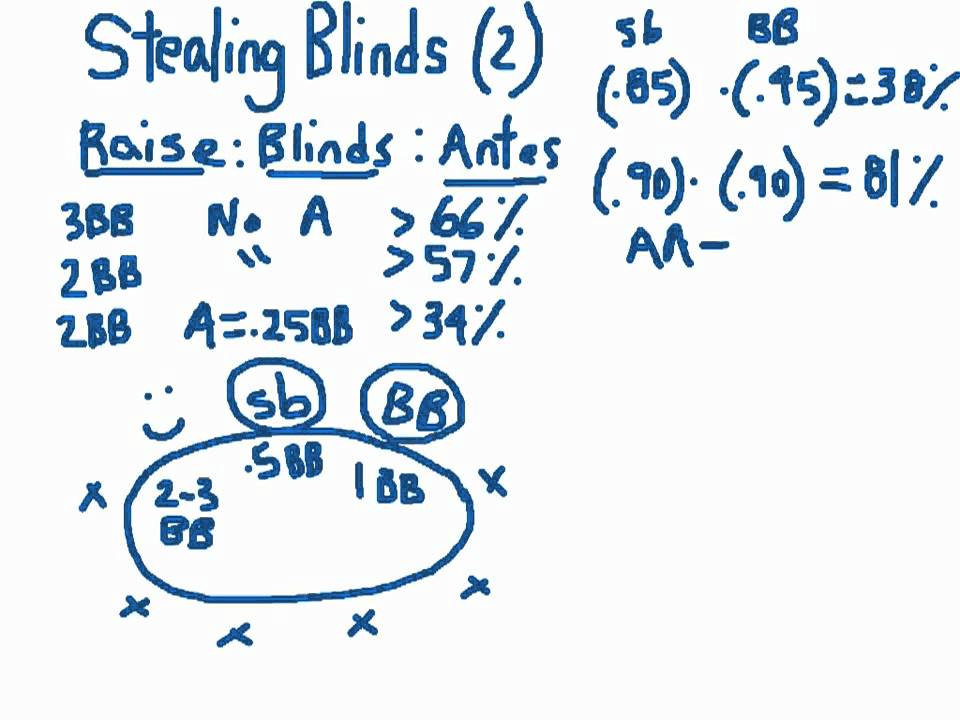 Stealing Blinds (2)
Raise : Blinds : Antes
3BB No A > 66%
2BB " > 57%
2BB A=.25BB > 34%
sb BB
(.85) · (.45) = 38%
(.90) · (.90) = 81%
AA –
sb BB
.5BB 1BB
x 2-3 x
BB
x x x x